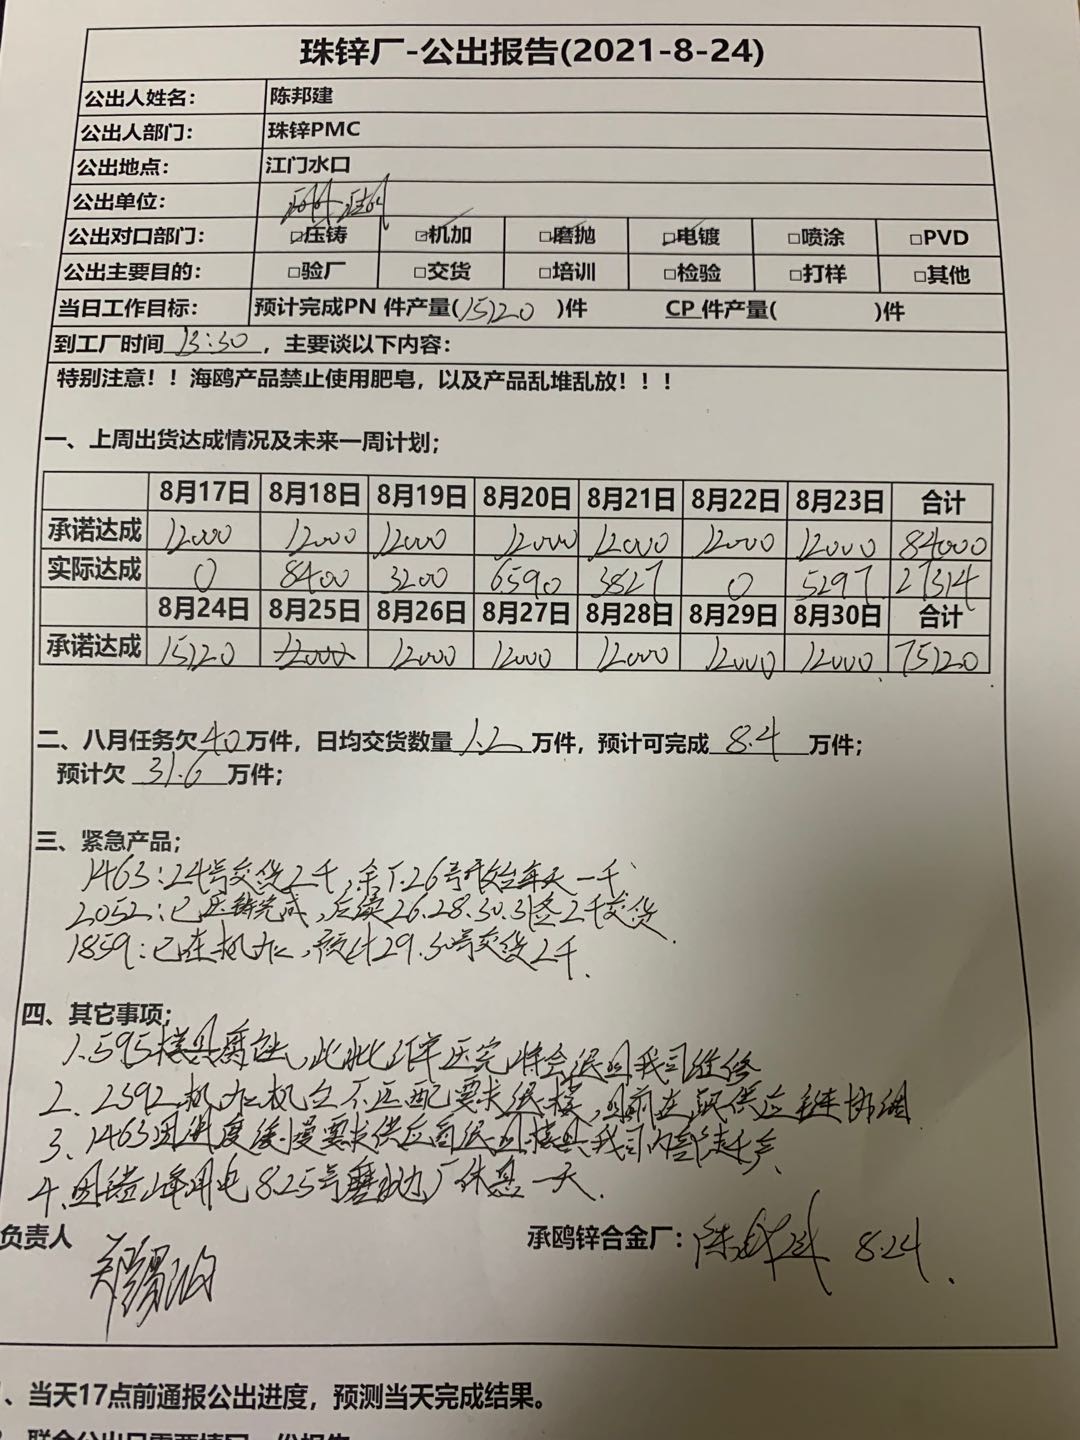 珠锌厂-公出报告(2021-8-24)
公出人姓名： 陈邦建
公出人部门： 珠锌PMC
公出地点： 江门水口
公出单位：
公出对口部门： ☑压铸 ☑机加 ☑磨抛 ☑电镀 □喷涂 □PVD
公出主要目的： □验厂 □交货 □培训 □检验 □打样 □其他
当日工作目标： 预计完成PN 件产量(15120 )件 CP 件产量( )件
到工厂时间 13:30 ，主要谈以下内容：
特别注意！！海鸥产品禁止使用肥皂，以及产品乱堆乱放！！！
一、上周出货达成情况及未来一周计划；
8月17日 8月18日 8月19日 8月20日 8月21日 8月22日 8月23日 合计
承诺达成 12000 12000 12000 12000 12000 12000 12000 84000
实际达成 0 8400 3200 6590 3827 0 5297 27314
8月24日 8月25日 8月26日 8月27日 8月28日 8月29日 8月30日 合计
承诺达成 15120 12000 12000 12000 12000 12000 12000 75120
二、八月任务欠 40 万件，日均交货数量 1.2 万件，预计可完成 8.4 万件；
预计欠 31.6 万件；
三、紧急产品；
1463：24号交货2千，余下26号开始每天一千
2052：已压铸完成，后续26.28.30.31各2千交货
1859：已在机加，预计29.30号交货2千.
四、其它事项；
1.595模具腐蚀，此批订单压完将会退回我司维修
2、2592机加机台不匹配要求退模，目前在跟供应链协调
3、1463因进度缓慢要求供应商退回模具我司内部生产
4.因错峰用电8.25号磨抛厂休息一天.
负责人 承鸥锌合金厂： 8.24
、当天17点前通报公出进度，预测当天完成结果。